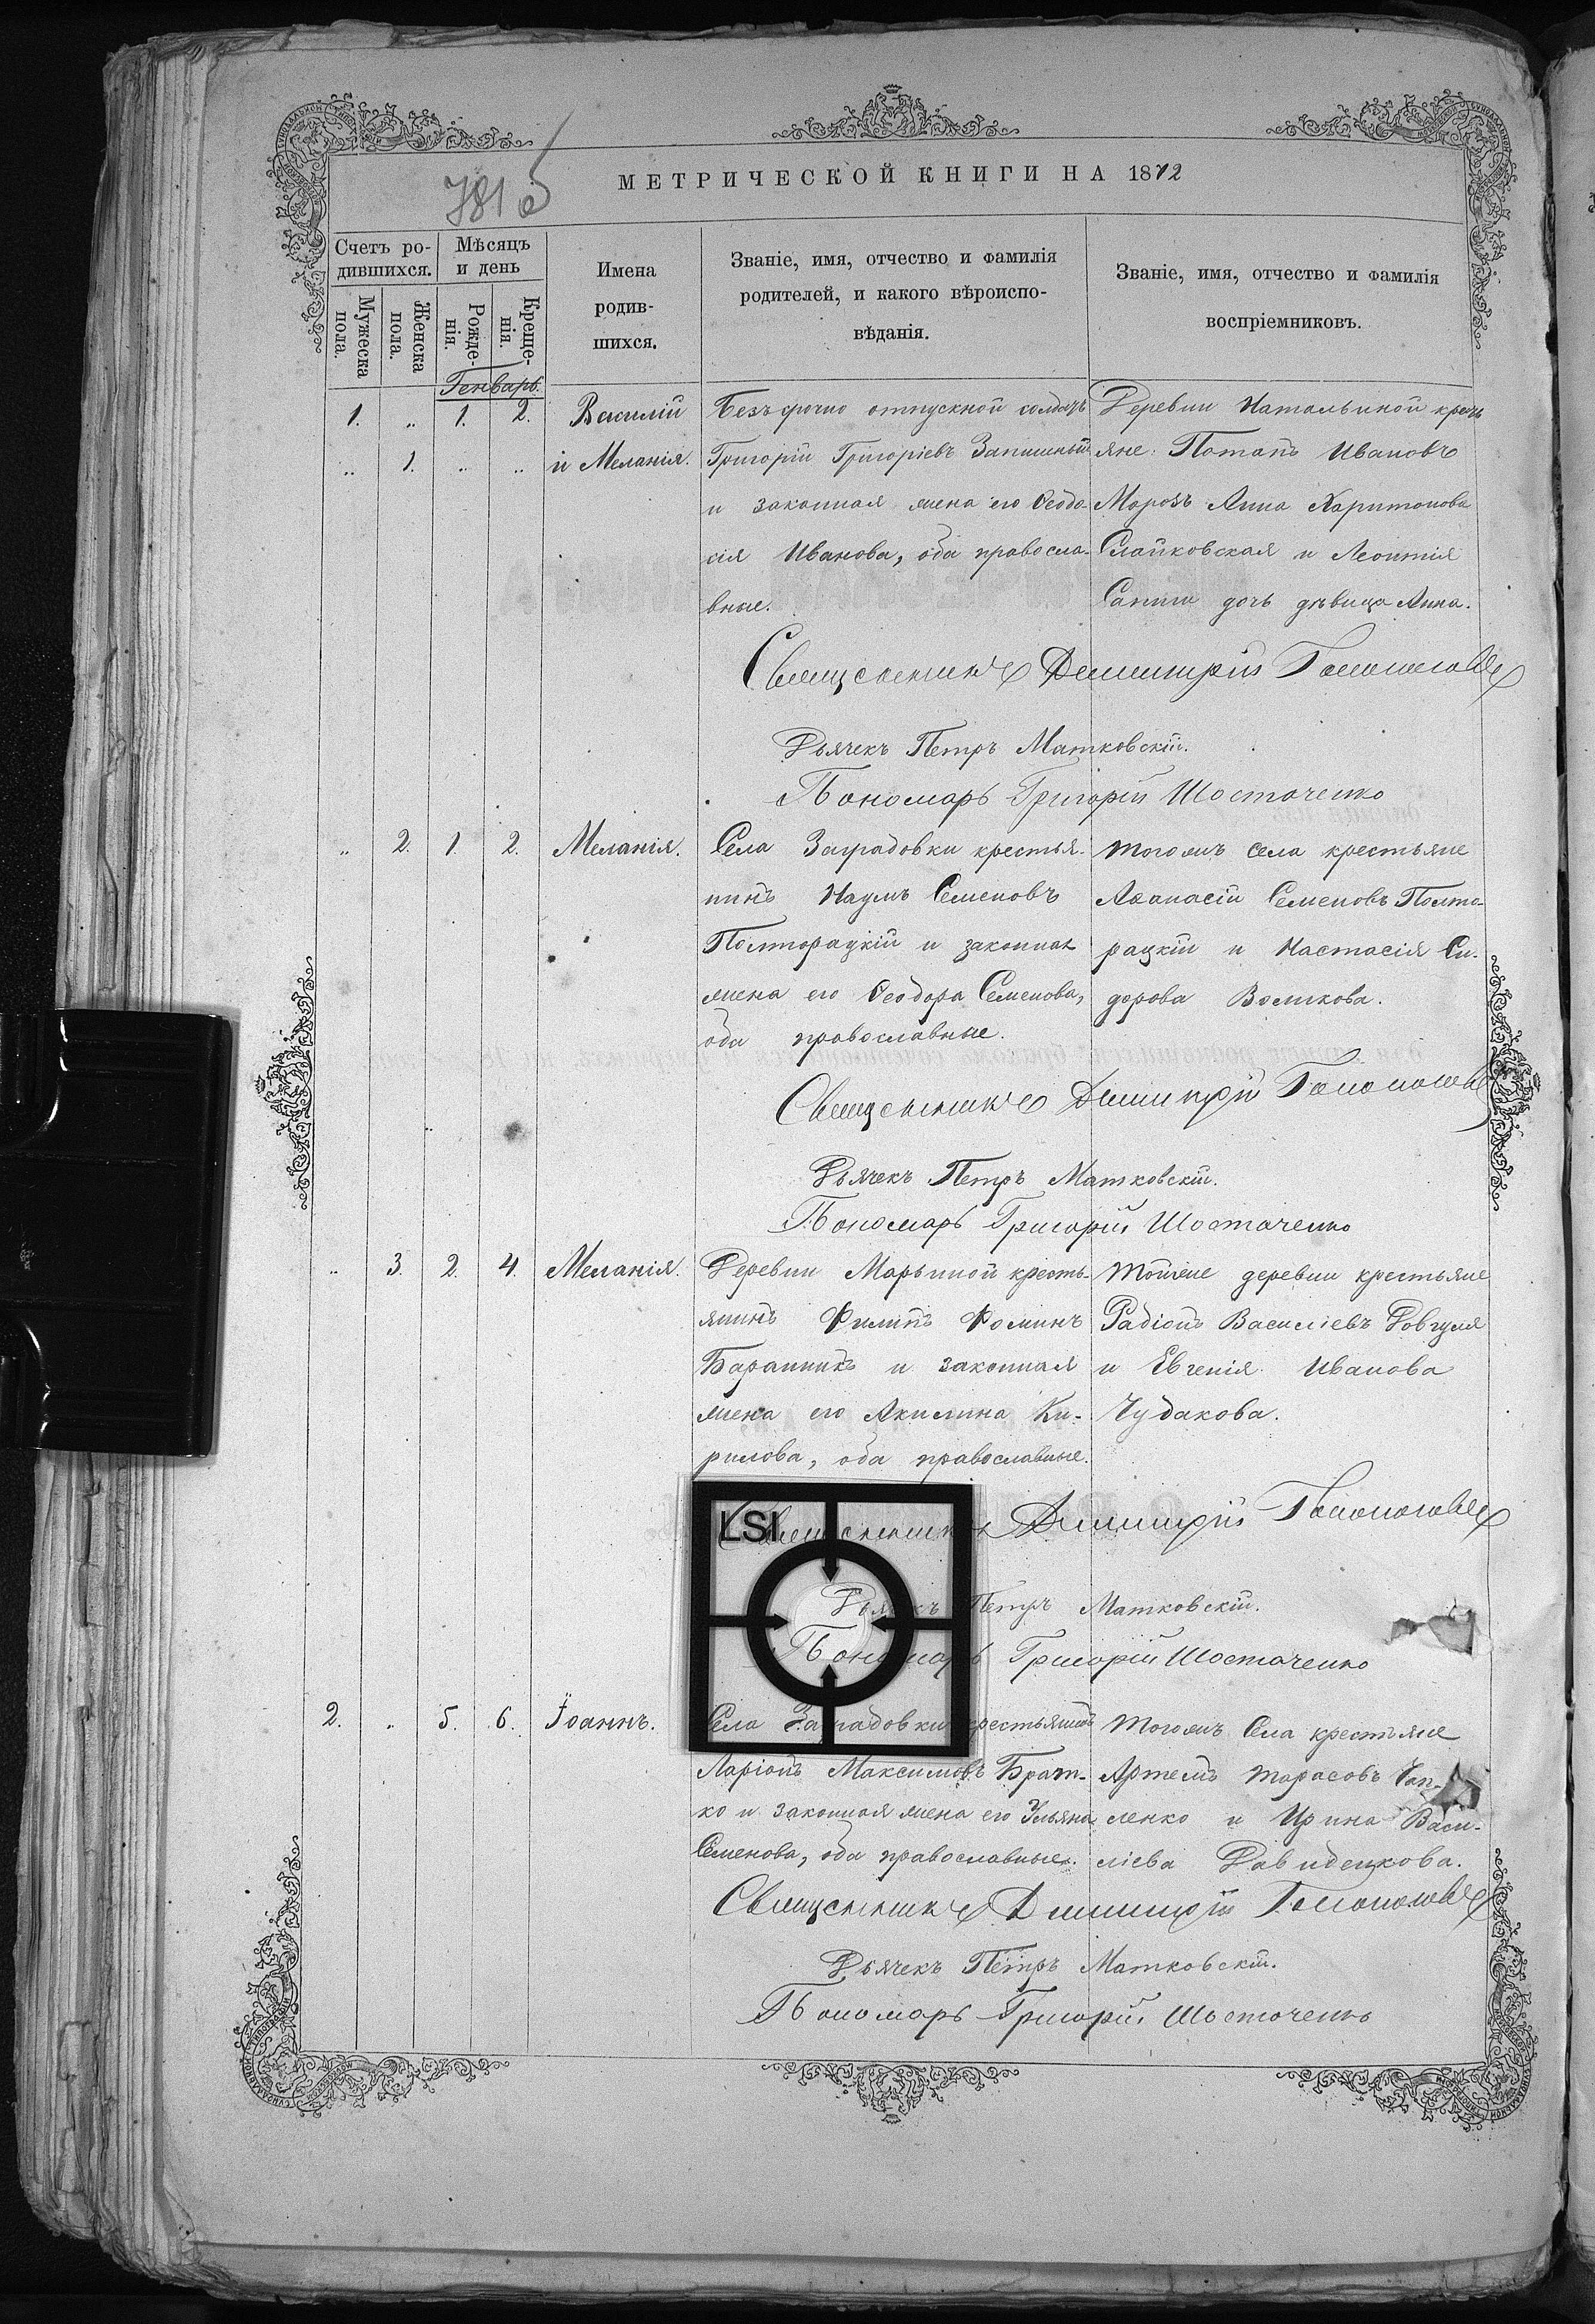 781 б
МЕТРИЧЕСКОЙ КНИГИ НА 1872
Счетъ ро-
дившихся.
Мужеска
пола.
Женска
пола.
Мѣсяцъ
и день
Рожде-
нія.
Креще-
нія.
Имена
родив-
шихся.
Званіе, имя, отчество и фамилія
родителей, и какого вѣроиспо-
вѣданія.
Званіе, имя, отчество и фамилія
воспріемниковъ.
Генварь.
1. „ 1. 2. Василій
„ 1. „ „ и Меланія.
Безъсрочно отпускной солдатъ
Григорій Григоріевъ
и законная жена его Ѳеодо-
сія Иванова, оба правосла-
вные.
Деревни Натальиной кресть
яне: Потапъ Ивановъ
Морозъ Анна Харитонова
и Леонтія
дочь дѣвица Анна.
Священникъ Димитрій
Дьячекъ Петръ Матковскій.
Пономарь Григорій Шостаченко
„ 2. 1. 2. Меланія.
Села Заградовки крестья-
нинъ Наумъ Семеновъ
Полторацкій и законная
жена его Ѳеодора Семенова,
оба православные.
тогожъ села крестьяне
Аѳанасій Семеновъ Полто-
рацкій и Настасія Си-
дорова Волкова.
Священникъ Димитрій
Дьячекъ Петръ Матковскій.
Пономарь Григорій Шостаченко
„ 3. 2. 4. Меланія.
Деревни Марьиной кресть-
янинъ Филипъ Фоминъ
Баранникъ и законная
жена его Акилина Ки-
рилова, оба православные.
тойже деревни крестьяне
Радіонъ Василіевъ Довгуля
и Евгенія Иванова
Чудакова.
LSI
Священникъ Димитрій
Дьячекъ Петръ Матковскій.
Пономарь Григорій Шостаченко
2. „ 5. 6. Іоаннъ.
Села Заградовки крестьянинъ
Ларіонъ Максимовъ Брат-
ко и законная жена его Ульяна
Семенова, оба православные.
тогожъ Села крестьяне
Артемъ Тарасовъ
ленко и Ирина Васи-
ліева
Священникъ Димитрій
Дьячекъ Петръ Матковскій.
Пономарь Григорій Шостаченко